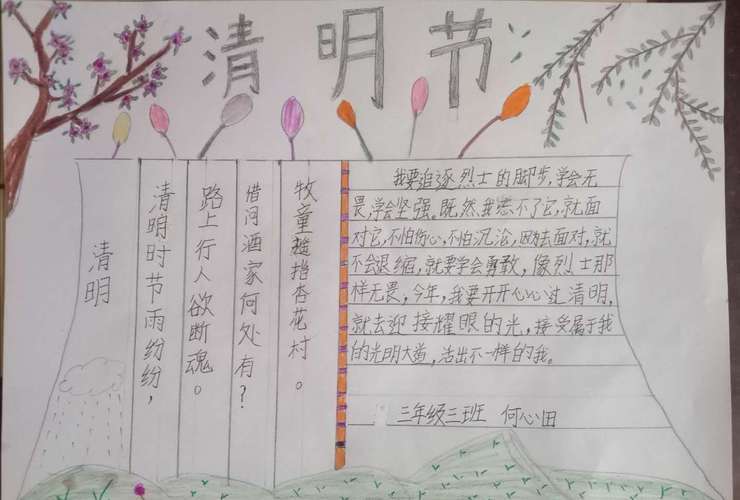 清明节
清明
清明时节雨纷纷，
路上行人欲断魂。
借问酒家何处有？
牧童指杏花村。
我要追逐烈士的脚步，学会无
畏，学会坚强。既然我忘不了它，就面
对它，不怕伤心，不怕沉沦，因为去面对，就
不会退缩，就要学会勇敢，像烈士那
样无畏，今年，我要开开心心过清明，
就去迎接耀眼的光，接受属于我
的光明大道，活出不一样的我。
三年级三班 何心田